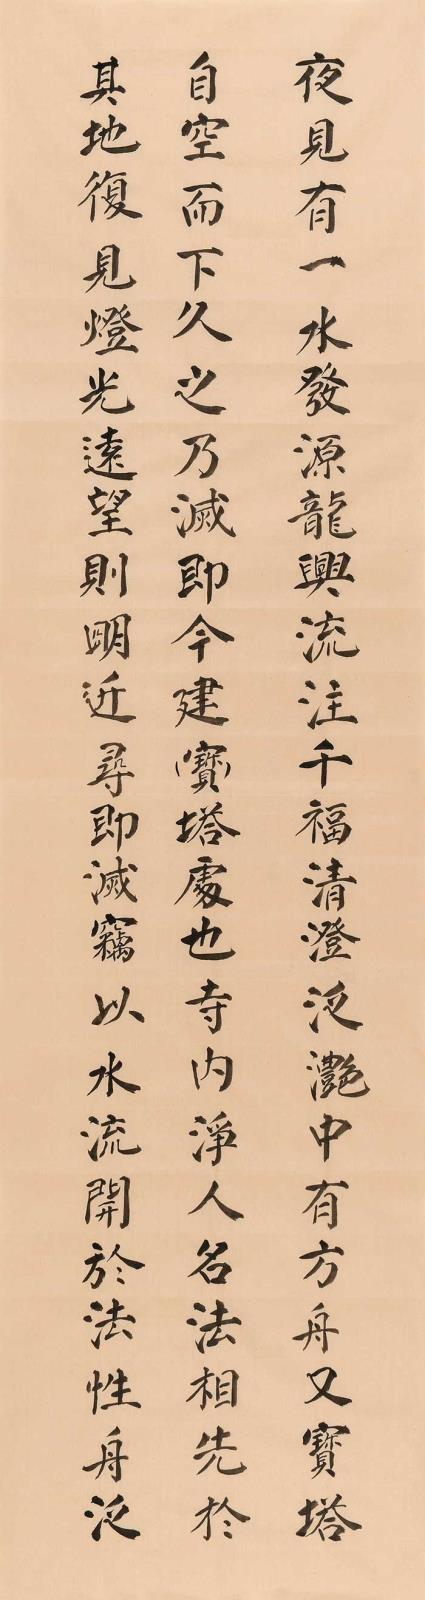 夜見有一水發源龍興流注千福清澄泛灩中有方舟又寶塔
自空而下久之乃滅即今建寶塔處也寺内淨人名法相先於
其地復見燈光遠望則明近尋即滅竊以水流開於法性舟泛